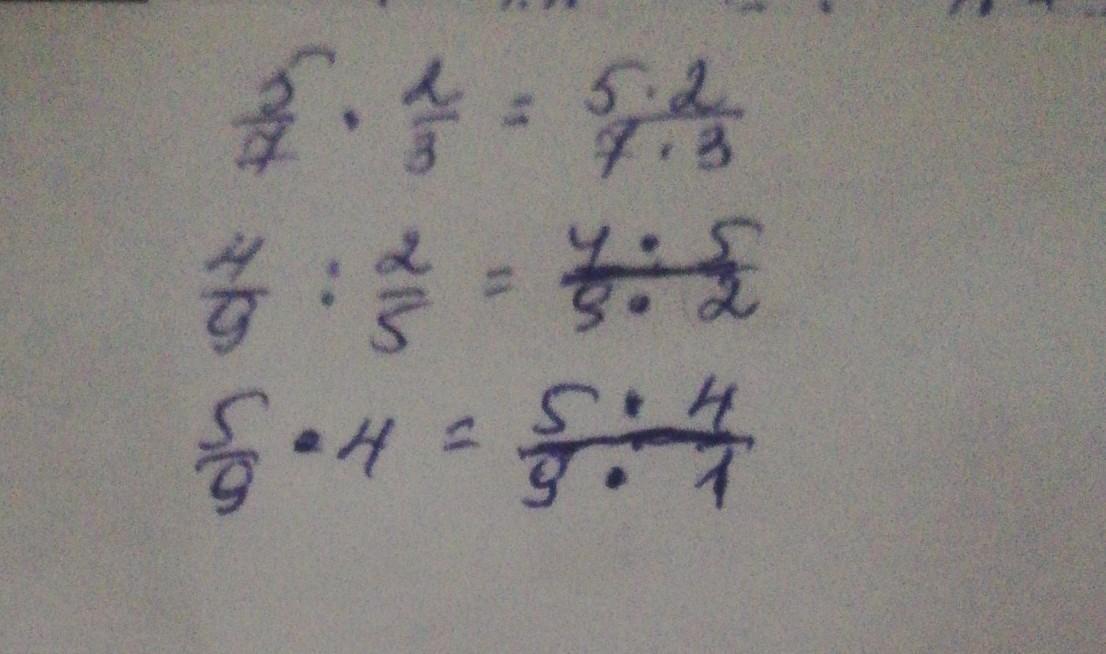 5/7 · 2/3 = 5·2/7·3
4/9 : 2/5 = 4·5/9·2
5/9 · 4 = 5·4/9·1